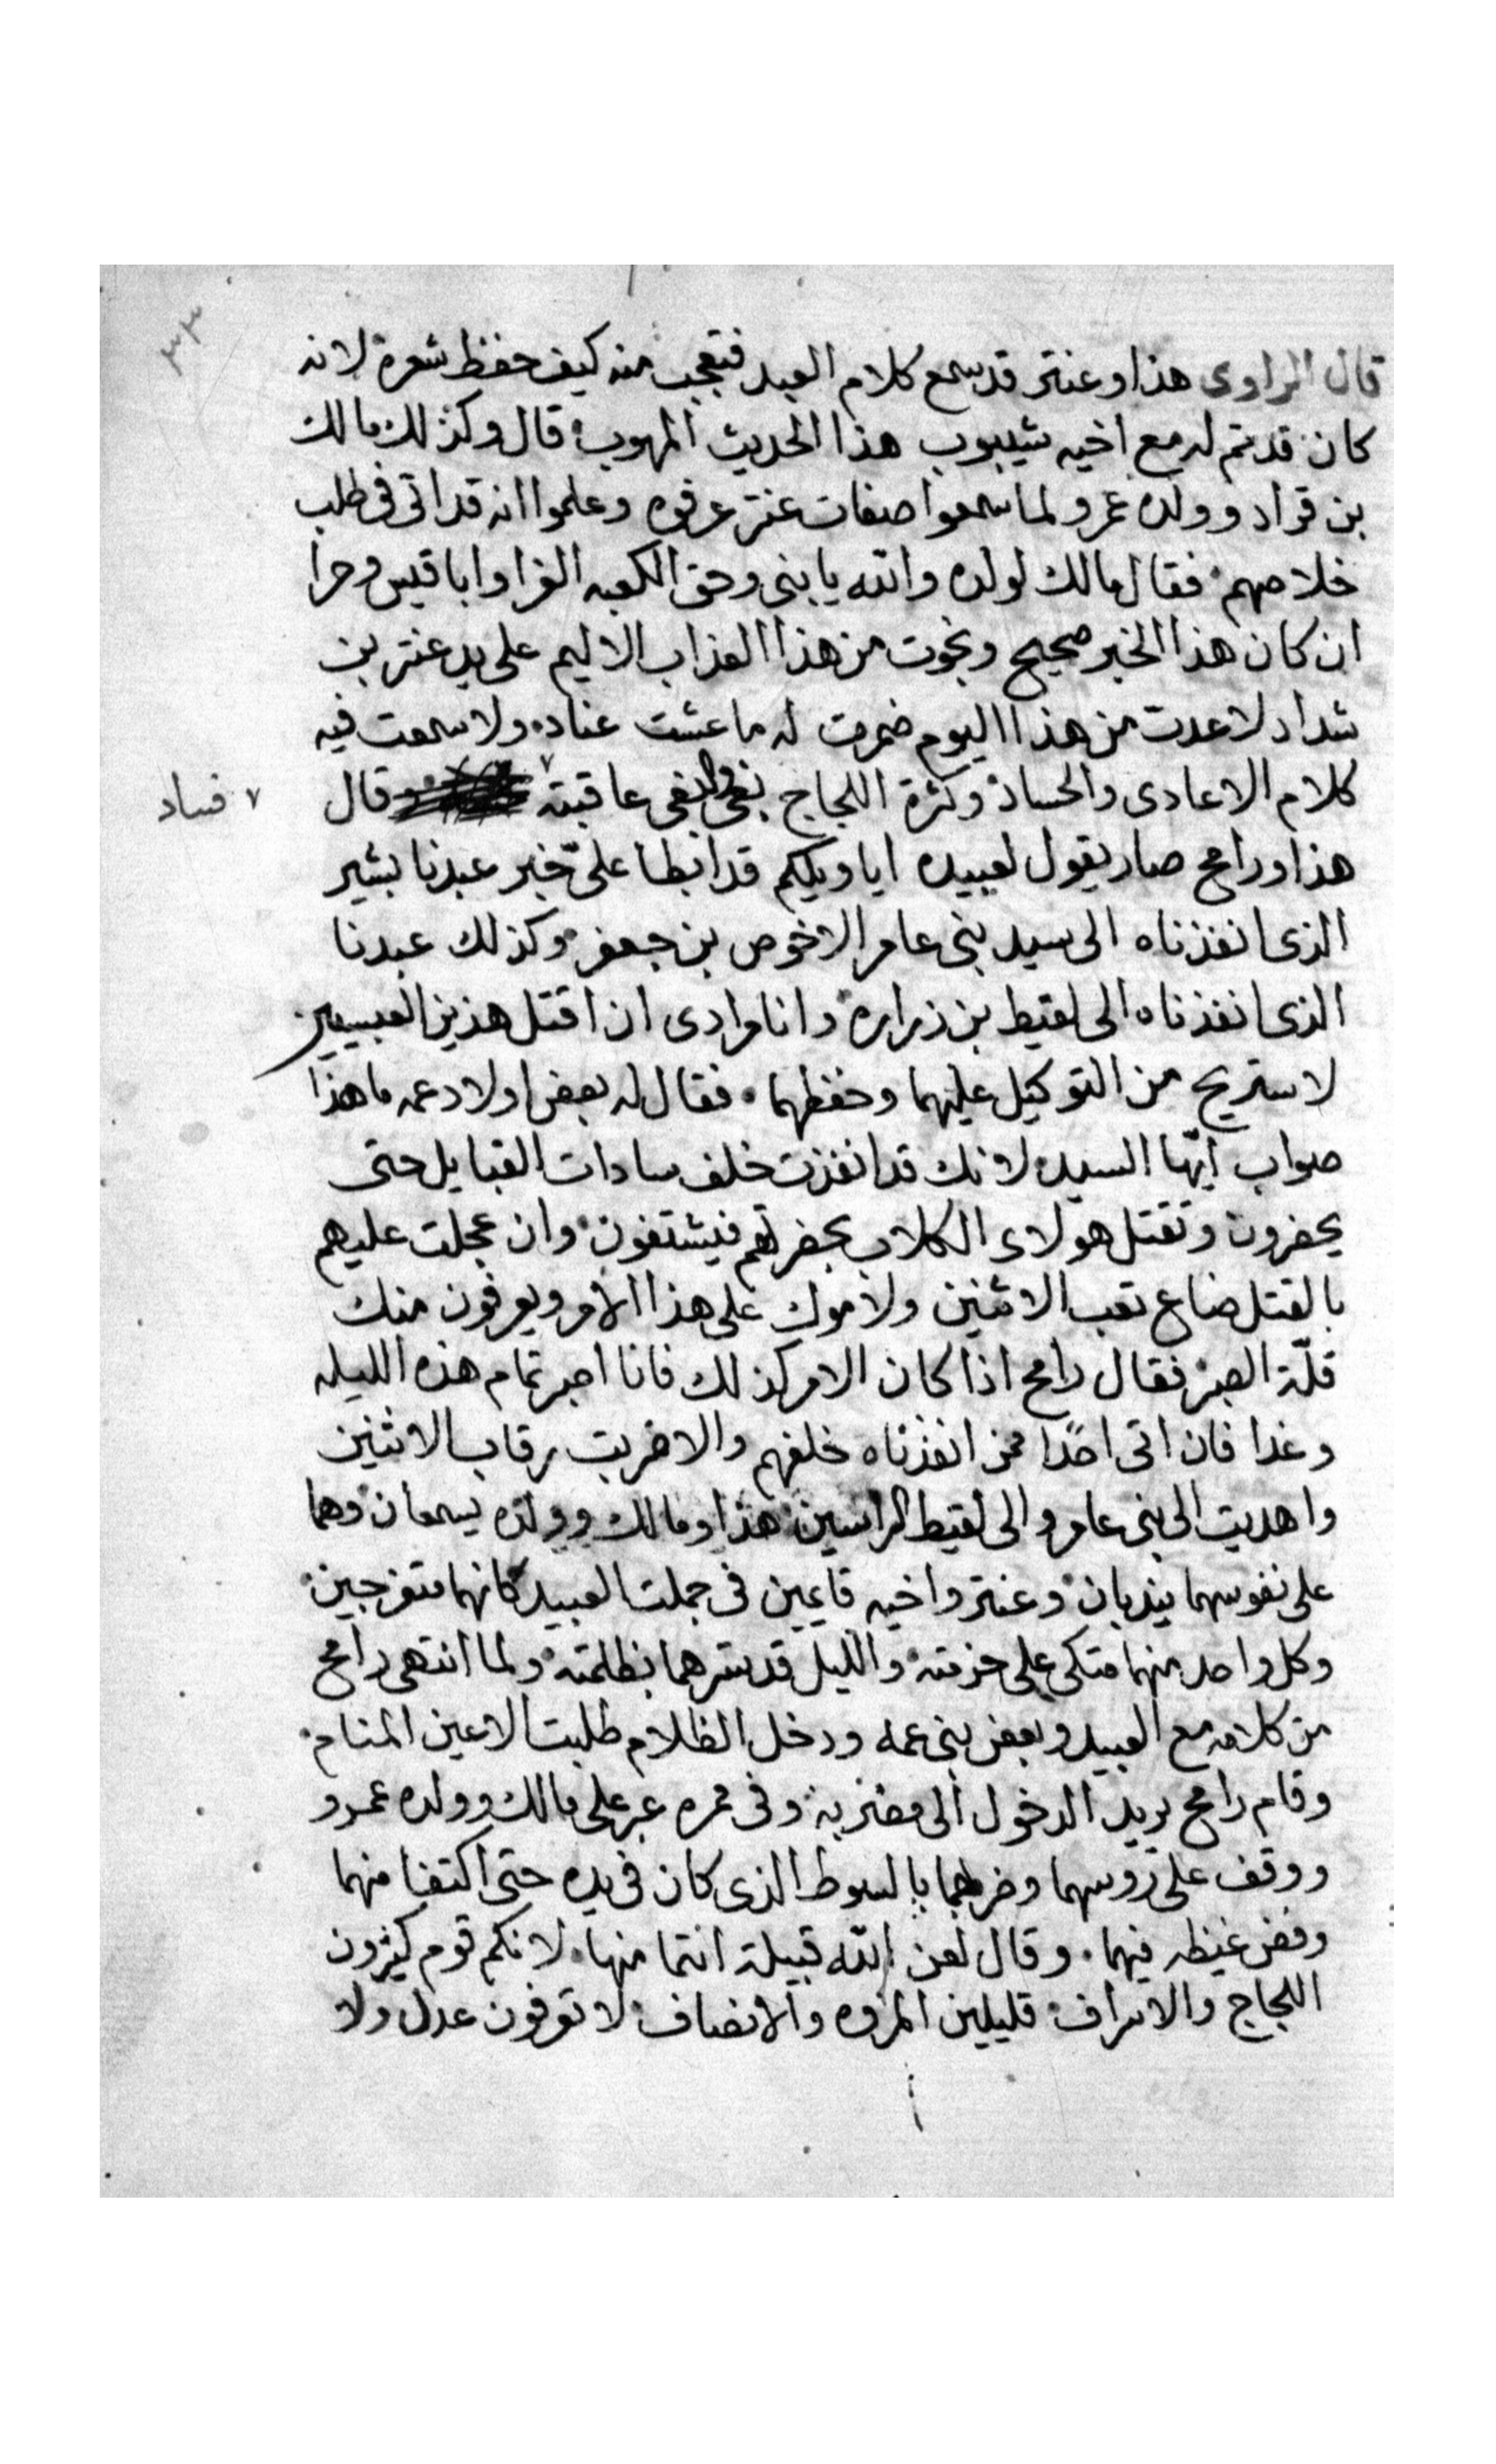 ٣٣
قال الراوى هذا وعنتر قد سمع كلام العبد فتعجب منه كيف حفظ شعره لانه
كان قد تم له مع اخيه شيبوب هذا الحديث المهوب قال وكذلك مالك
بن قراد وولده عمرو لما سمعوا صفات عنتر عرفوه وعلموا انه قد اتى فى طلب
خلاصهم فقال مالك لولده والله يا بنى وحق الكعبه الغرا وابا قيس وحرا
ان كان هذا الخبر صحيح ونجوت من هذا العذاب الاليم على يد عنتر بن
شداد لا عدت من هذا اليوم ضمرت له ما عشت عناد ولا سمعت فيه
كلام الاعادى والحساد وكثرة اللجاج بغى والبغى عاقبته قال
٧ فساد
هذا ورامح صار يقول لعبيده ايا ويلكم قد ابطا علىّ خبر عبدنا بشير
الذى انفذناه الى سيد بنى عامر الاخوص بن جعفر وكذلك عبدنا
الذى انفذناه الى لقيط بن زراره وانا مرادى ان اقتل هذين العبسيين
لاستريح من التوكيل عليهما وحفظهما فقال له بعض اولاد عمه ما هذا
صواب ايّها السيد لانك قد انفذت خلف سادات القبايل حتى
يحضرون وتقتل هولاى الكلاب بحضرتهم فيشتفون وان عجلت عليهم
بالقتل ضاع تعب الاثنين ولاموك على هذا الامر ويعرفون منك
قلّة الصبر فقال رامح اذا كان الامر كذلك فانا اصبر تمام هذه الليله
وغدا فان اتى احدًا ممن انفذناه خلفهم والا ضربت رقاب الاثنين
واهديت الى بنى عامر والى لقيط الراسين هذا ومالك وولده يسمعان وهما
على نفوسهما يندبان وعنتر واخيه قايمين فى جملت العبيد كانهما متفرجين
وكل واحد منهما متكى على حزمته والليل قد سترهما بظلمته ولما انتهى رامح
من كلامه مع العبيد وبعض بنى عمه ودخل الظلام طلبت الاعين المنام
وقام رامح يريد الدخول الى مضربه وفى ممره عبر على مالك وولده عمرو
ووقف على روسهما وضربهما بالسوط الذى كان فى يده حتى اكتفا منهما
وفض غيظه فيهما وقال لعن الله قبيلة انتما منها لانكم قوم كيثرون
اللجاج والاسراف قليلين المروه والانصاف لا توفون عدل ولا